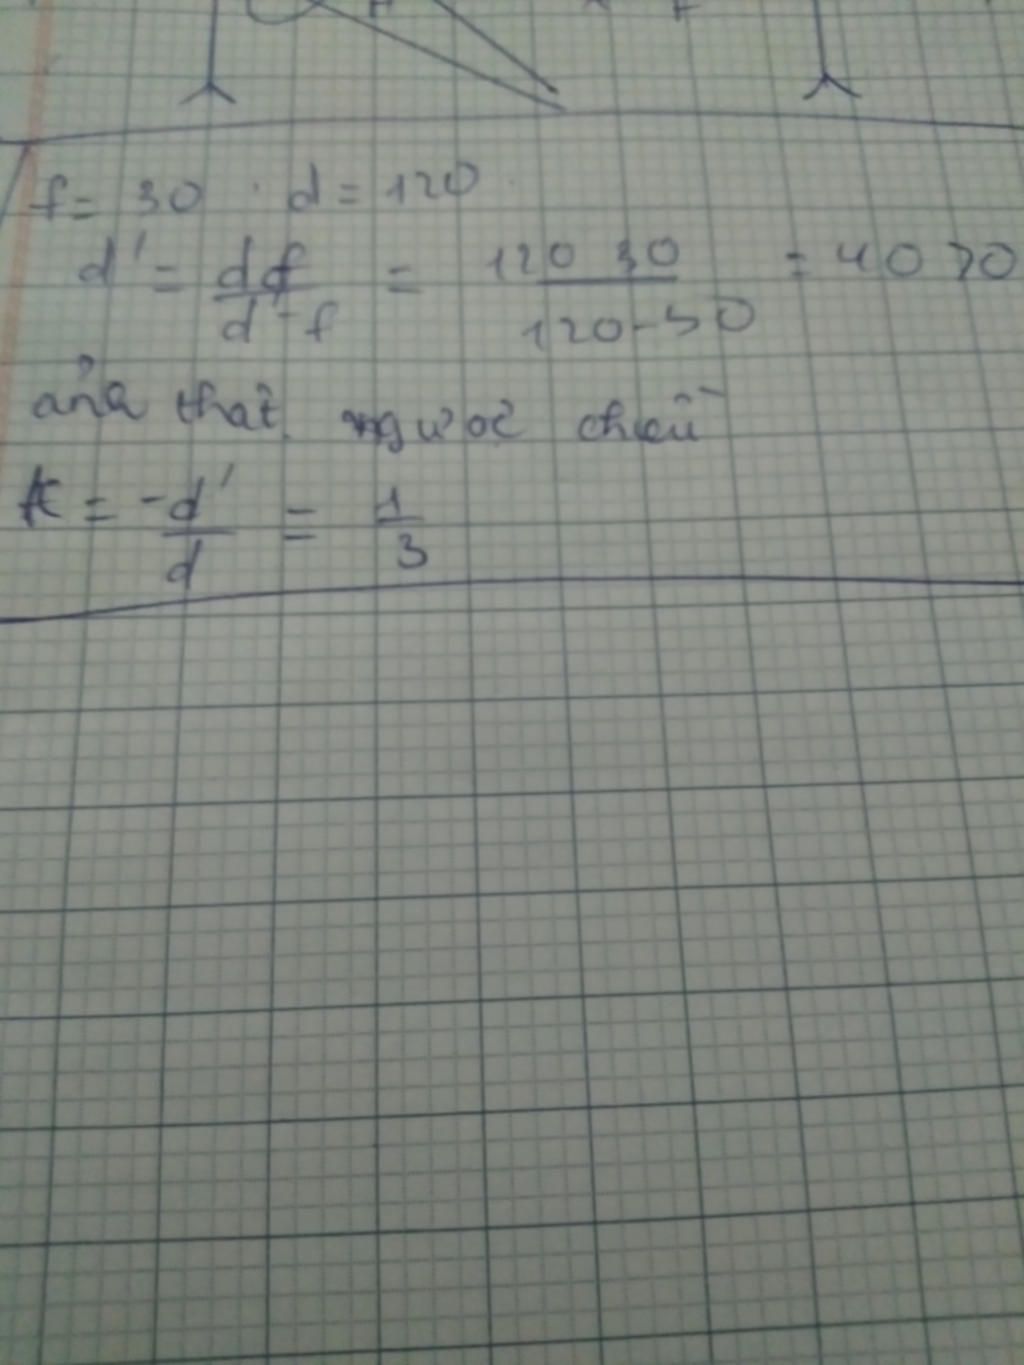 f = 30 . d = 120
d' = df / d - f = 120 30 / 120-30 = 40 > 0
ảnh thật ngược chiều
k = -d' / d = 1 / 3